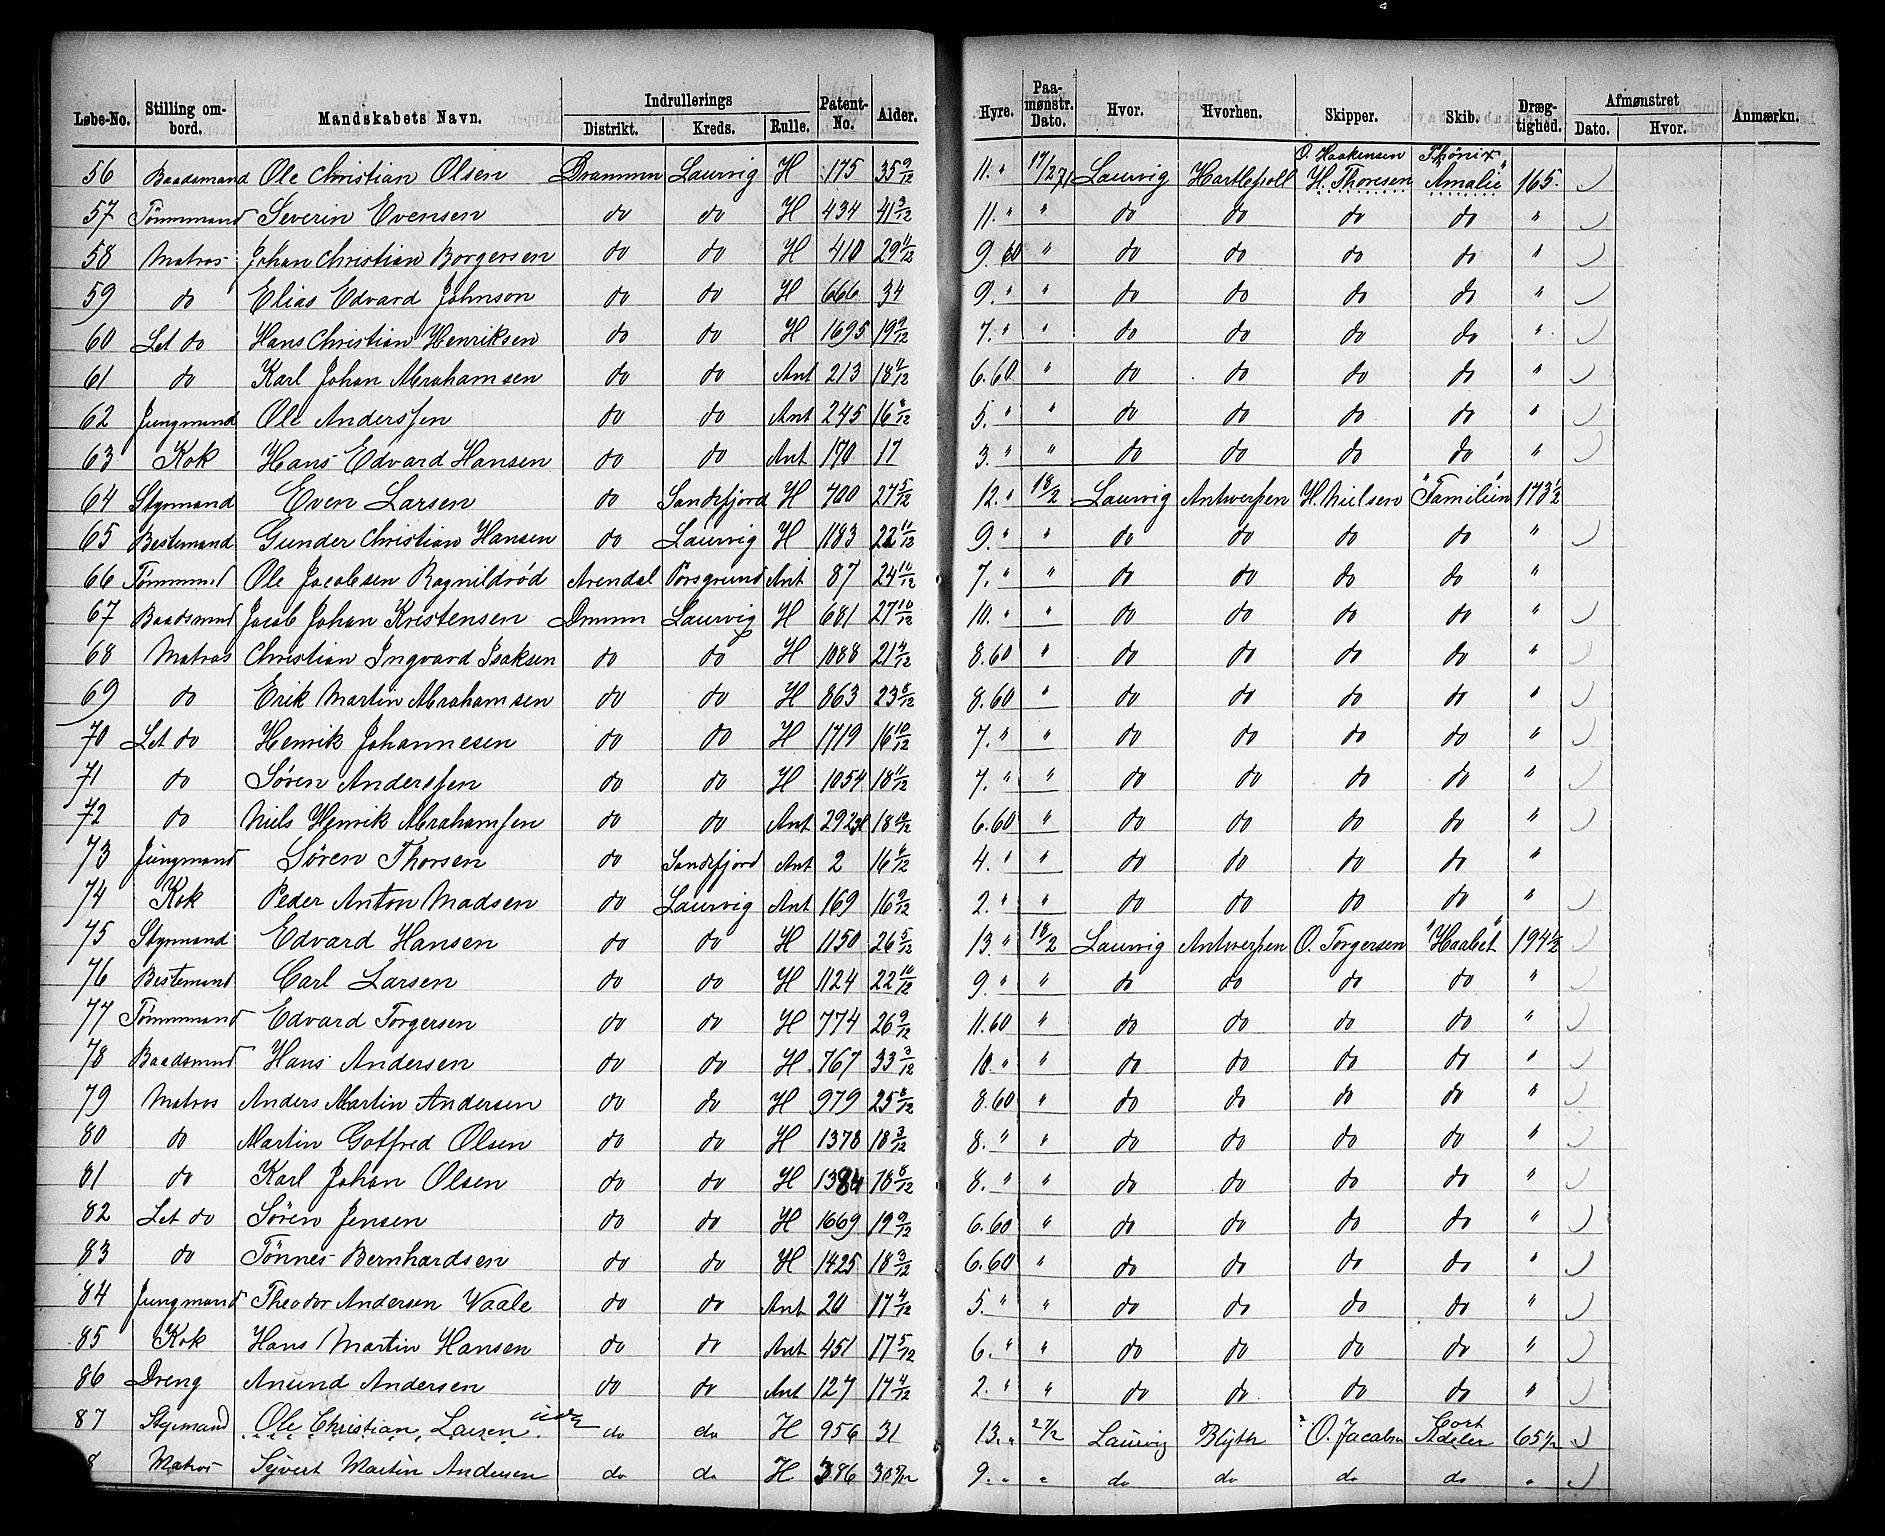 Løbe-No. | Stilling ombord. | Mandskabets Navn. | Indrullerings Distrikt. | Kreds. | Rulle. | Patent-No. | Alder. | Hyre. | Paamønstr. Dato. | Hvor. | Hvorhen. | Skipper. | Skib. | Drægtighed. | Afmønstret Dato. | Hvor. | Anmærkn.
56 Baadsmand Ole Christian Olsen Drammen Laurvig H 175 35 9/12 11. " 17/2 71 Laurvig Hartlepoll O. Haakensen H. Thoresen Phønix "Amalie" 165.
57 Tømmmand Severin Evensen do do H 434 41 3/12 11. " " do do do do "
58 Matros Johan Christian Borgersen do do H 410 29 11/12 9. 60 " do do do do "
59 do Elias Edvard Johnson do do H 666 34 9. " " do do do do "
60 Let do Hans Christian Henriksen do do H 1695 19 9/12 7. " " do do do do "
61 do Karl Johan Abrahamsen do do Ant 213 18 11/12 6. 60 " do do do do "
62 Jungmand Ole Anderssen do do Ant 245 16 /12 5. " " do do do do "
63 Kok Hans Edvard Hansen do do Ant 170 17 3. " " do do do do "
64 Styrmand Even Larsen do Sandefjord H 700 27 5/12 12. " 18/2 Laurvig Antwerpen H. Nielsen "Familien" 173 1/2
65 Bestemand Gunder Christian Hansen do Laurvig H 1183 22 11/12 9. " " do do do do "
66 Tømmmd Ole Jacobsen Ragnildrød Arendal Porsgrund Ant 87 24 11/12 7. " " do do do do "
67 Baadsmnd Jacob Johan Kristensen Drammen Laurvig H 681 27 10/12 10. " " do do do do "
68 Matros Christian Ingvard Isaksen do do H 1088 21 4/12 8. 60 " do do do do "
69 do Erik Martin Abrahamsen do do H 863 23 8/12 8. 60 " do do do do "
70 Let do Henrik Johannesen do do H 1719 16 10/12 7. " " do do do do "
71 do Søren Anderssen do do H 1054 18 11/12 7. " " do do do do "
72 do Niels Henrik Abrahamsen do do Ant 292 18 10/12 6. 60 " do do do do "
73 Jungmand Søren Thorsen do Sandefjord Ant 2 16 /12 4. " " do do do do "
74 Kok Peder Anton Madsen do Laurvig Ant 169 16 9/12 2. " " do do do do "
75 Styrmand Edvard Hansen do do H 1150 26 5/12 13 " 18/2 Laurvig Antwerpen O. Torgersen "Haabet" 194 1/2
76 Bestemand Carl Larsen do do H 1124 22 10/12 9. " " do do do do "
77 Tømmmand Edvard Torgersen do do H 774 26 9/12 11. 60 " do do do do "
78 Baadsmnd Hans Andersen do do H 767 33 3/12 10. " " do do do do "
79 Matros Anders Martin Andersen do do H 979 25 8/12 8. 60 " do do do do "
80 do Martin Gotfred Olsen do do H 1378 18 3/12 8. " " do do do do "
81 do Karl Johan Olsen do do H 1384 18 8/12 8. " " do do do do "
82 Let do Søren Jensen do do H 1669 19 9/12 6. 60 " do do do do "
83 do Tønnes Bernhardsen do do H 1425 18 3/12 6. 60 " do do do do "
84 Jungmand Theodor Andersen Vaale do do Ant 20 17 4/12 5. " " do do do do "
85 Kok Hans Martin Hansen do do Ant 451 17 5/12 6. " " do do do do "
86 Dreng Anund Andersen do do Ant 127 17 4/12 2. " " do do do do "
87 Styrmand Ole Christian Larsen do do H 956 31 13. " 27/2 Laurvig Blyth O. Jacobsen Cort Adeler 65 1/2
8 Matros Syvert Martin Andersen do do H 386 30 /12 9. " " do do do do "